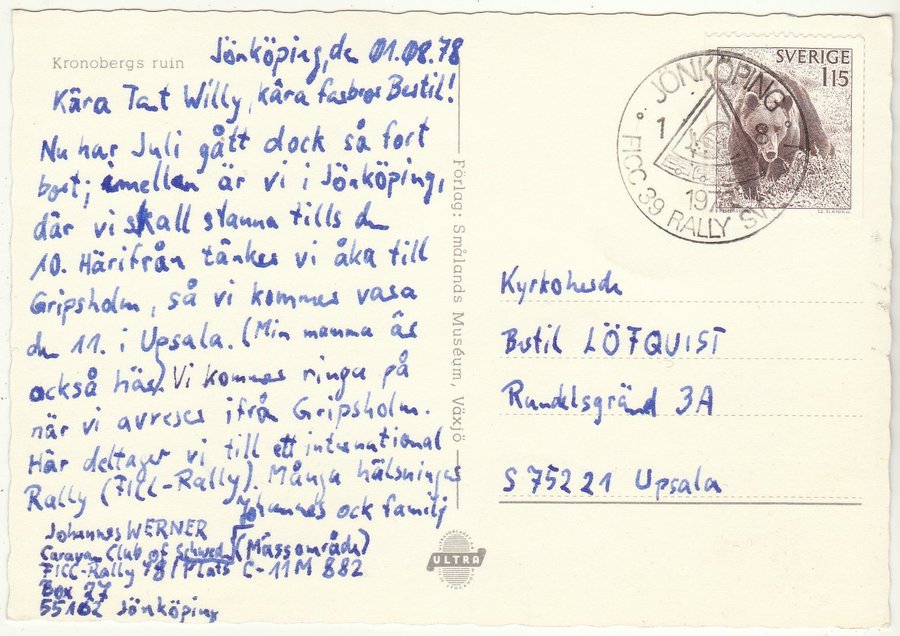 Kronobergs ruin
Jönköping, de 01.08.78
Kära Tant Willy, kära farbror Bertil!
Nu har Juli gått dock så fort
bort; emellan är vi i Jönköping,
där vi skall stanna tills den
10. Härifrån tänker vi åka till
Gripsholm, så vi kommer vara
den 11. i Upsala. (Min mamma är
också här) Vi kommer ringa på
när vi avreser ifrån Gripsholm.
Här deltager vi till ett international
Rally (FICC-Rally). Många hälsningar
Johannes ock familj
Johannes WERNER
Caravan Club of Schweden (Mässområde)
FICC-Rally 78 / Plats C-11M 882
Box 27
55102 Jönköping
Förlag: Smålands Museum, Växjö
ULTRA
SVERIGE
115
JÖNKÖPING
1 8
1978
FICC 39 RALLY
Kyrkoherde
Bertil LÖFQUIST
Rundelsgränd 3A
S 752 21 Upsala